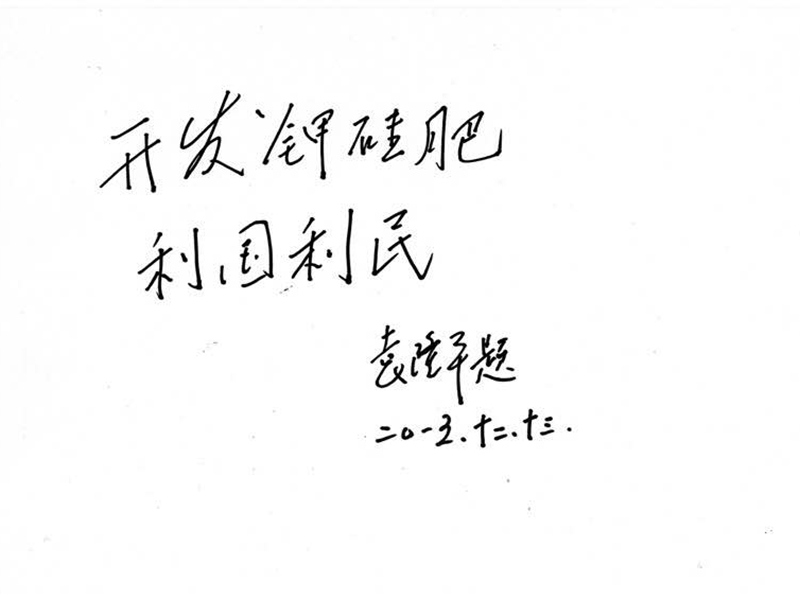 开发钾硅肥
利国利民
袁隆平题
二〇一三.十二.十三.